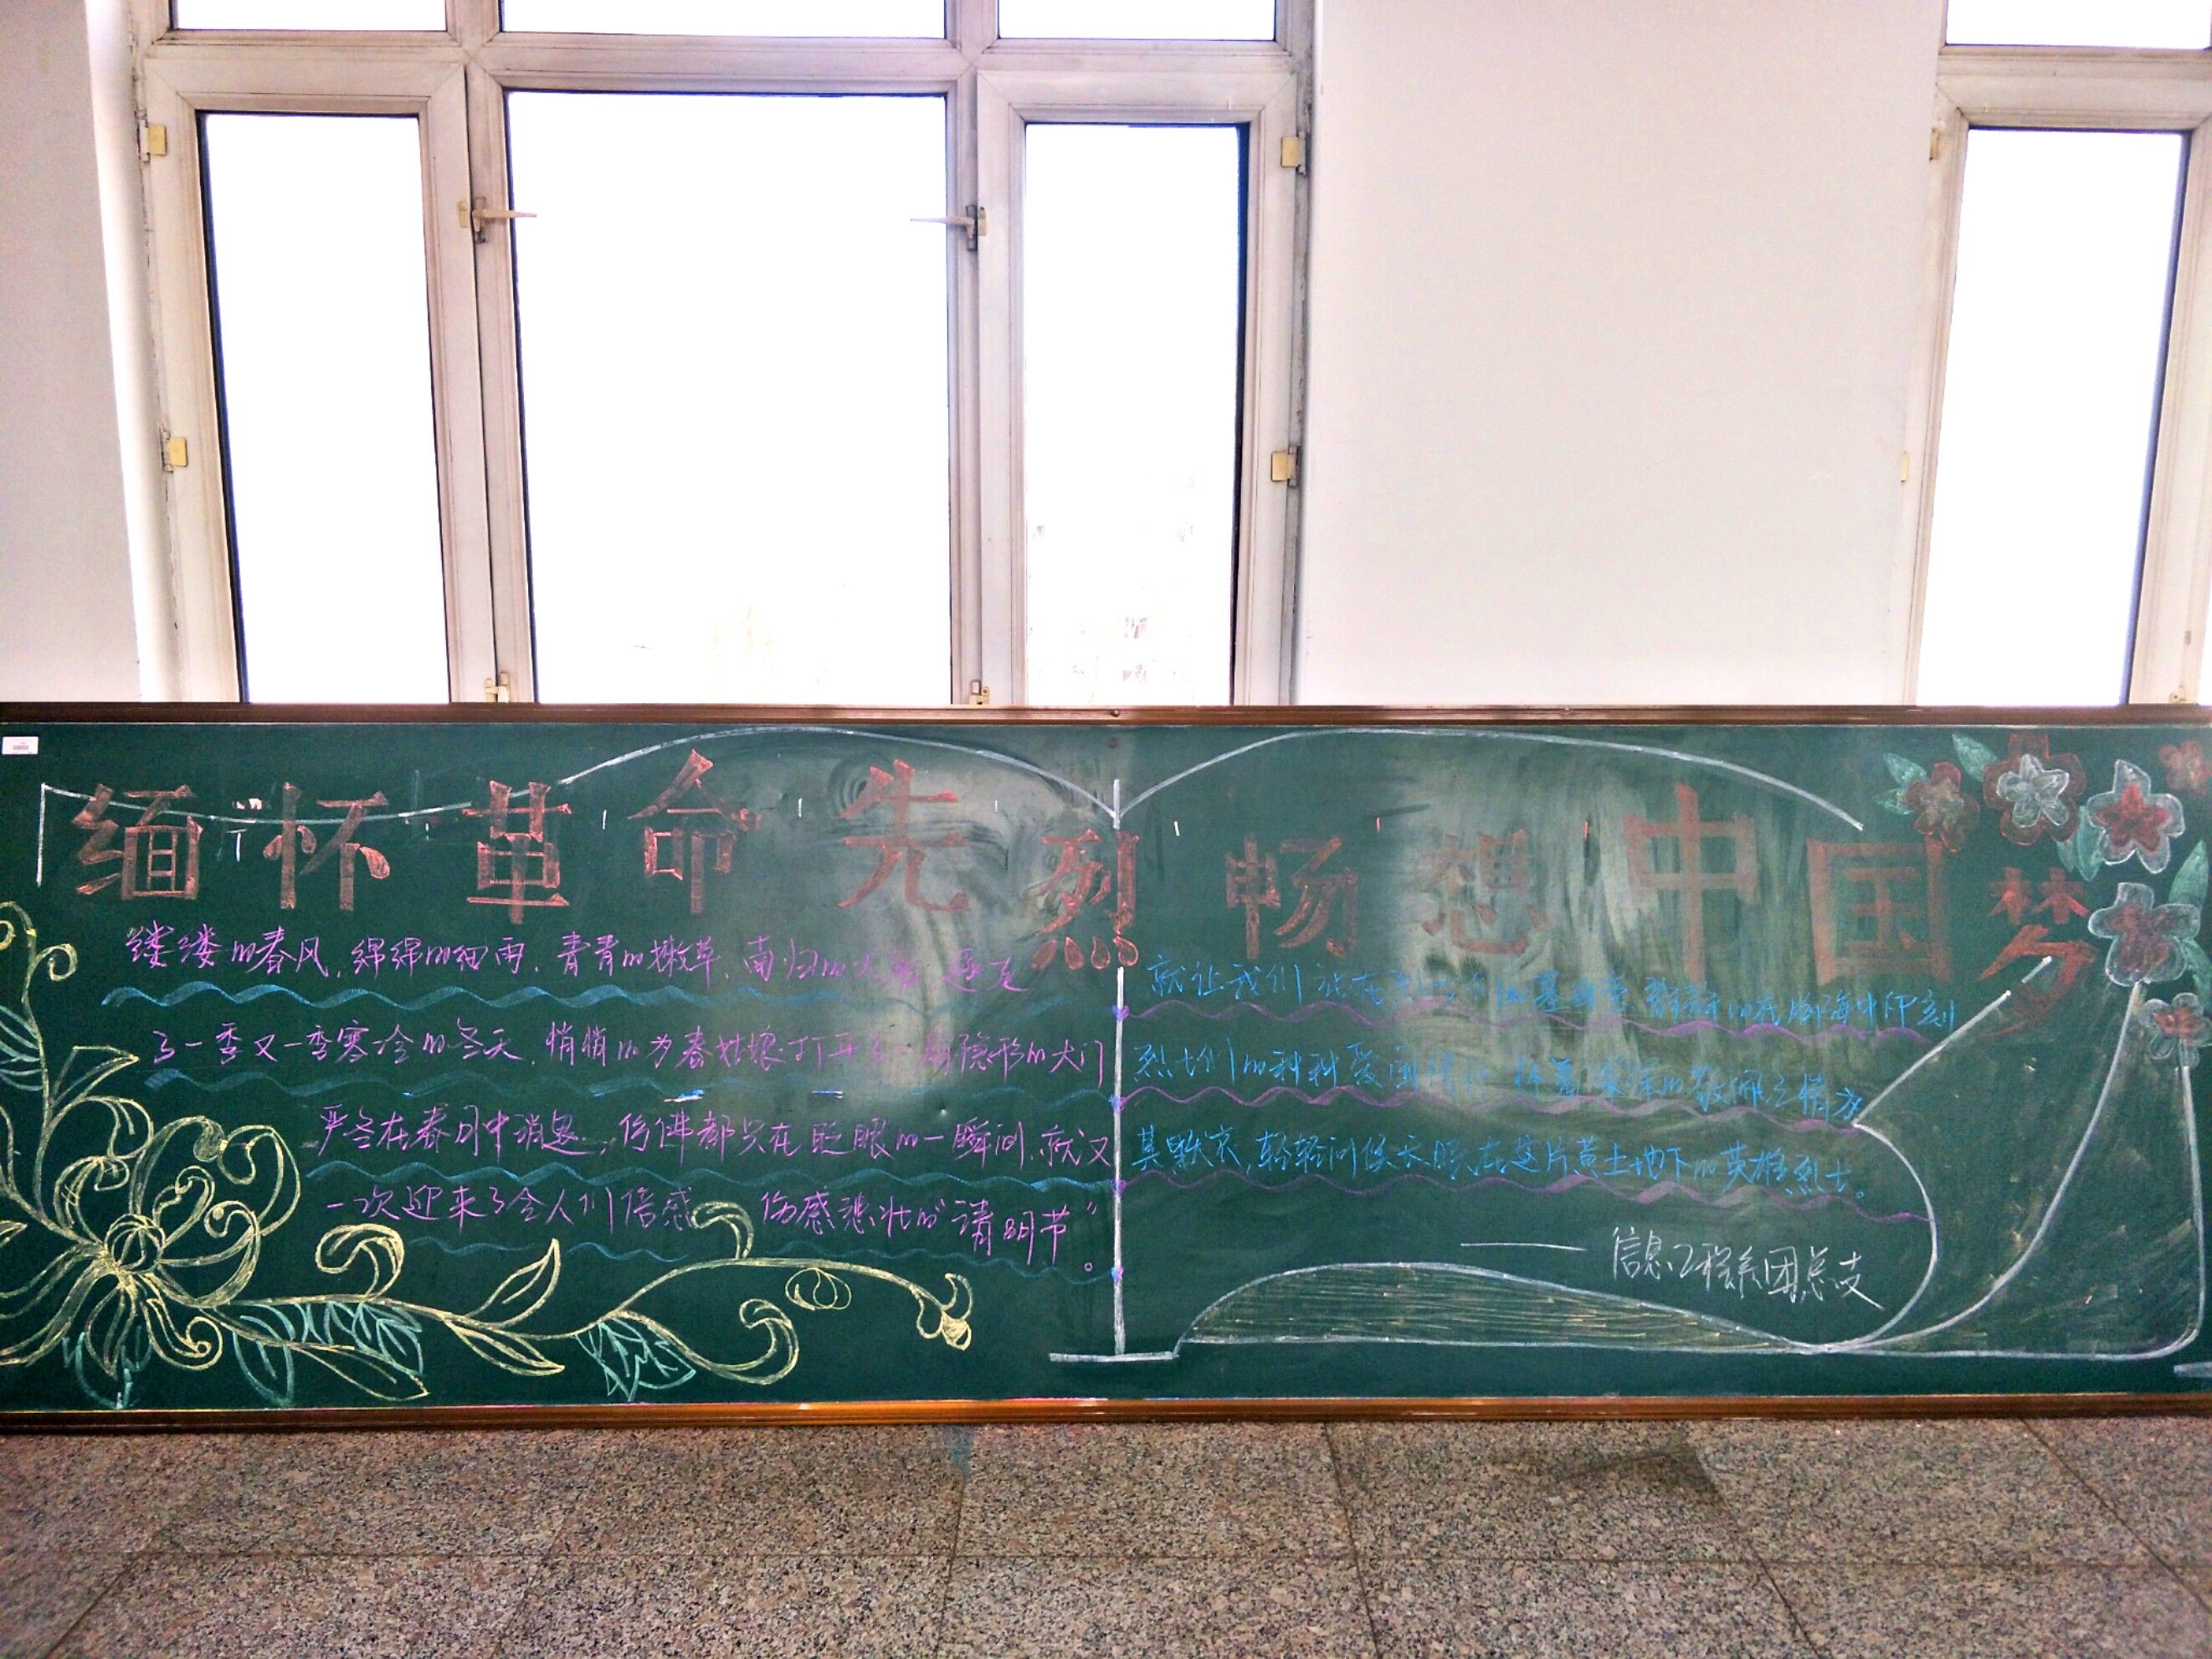 缅怀革命先烈 畅想中国梦
缕缕的春风，绵绵的细雨，青青的嫩草，南归的大雁，送走
了一季又一季寒冷的冬天，悄悄的为春姑娘打开了一扇隐形的大门
严冬在春日中消退，仿佛都只在眨眼的一瞬间，就又
一次迎来了令人们倍感 伤感悲壮的“清明节”。
就让我们站在烈士们的墓碑 海中印刻
烈士们的种种爱国 怀着 的敬佩之情为
其默哀，轻轻问候长眠在这片黄土地下的英雄烈士。
——信息工程系团总支